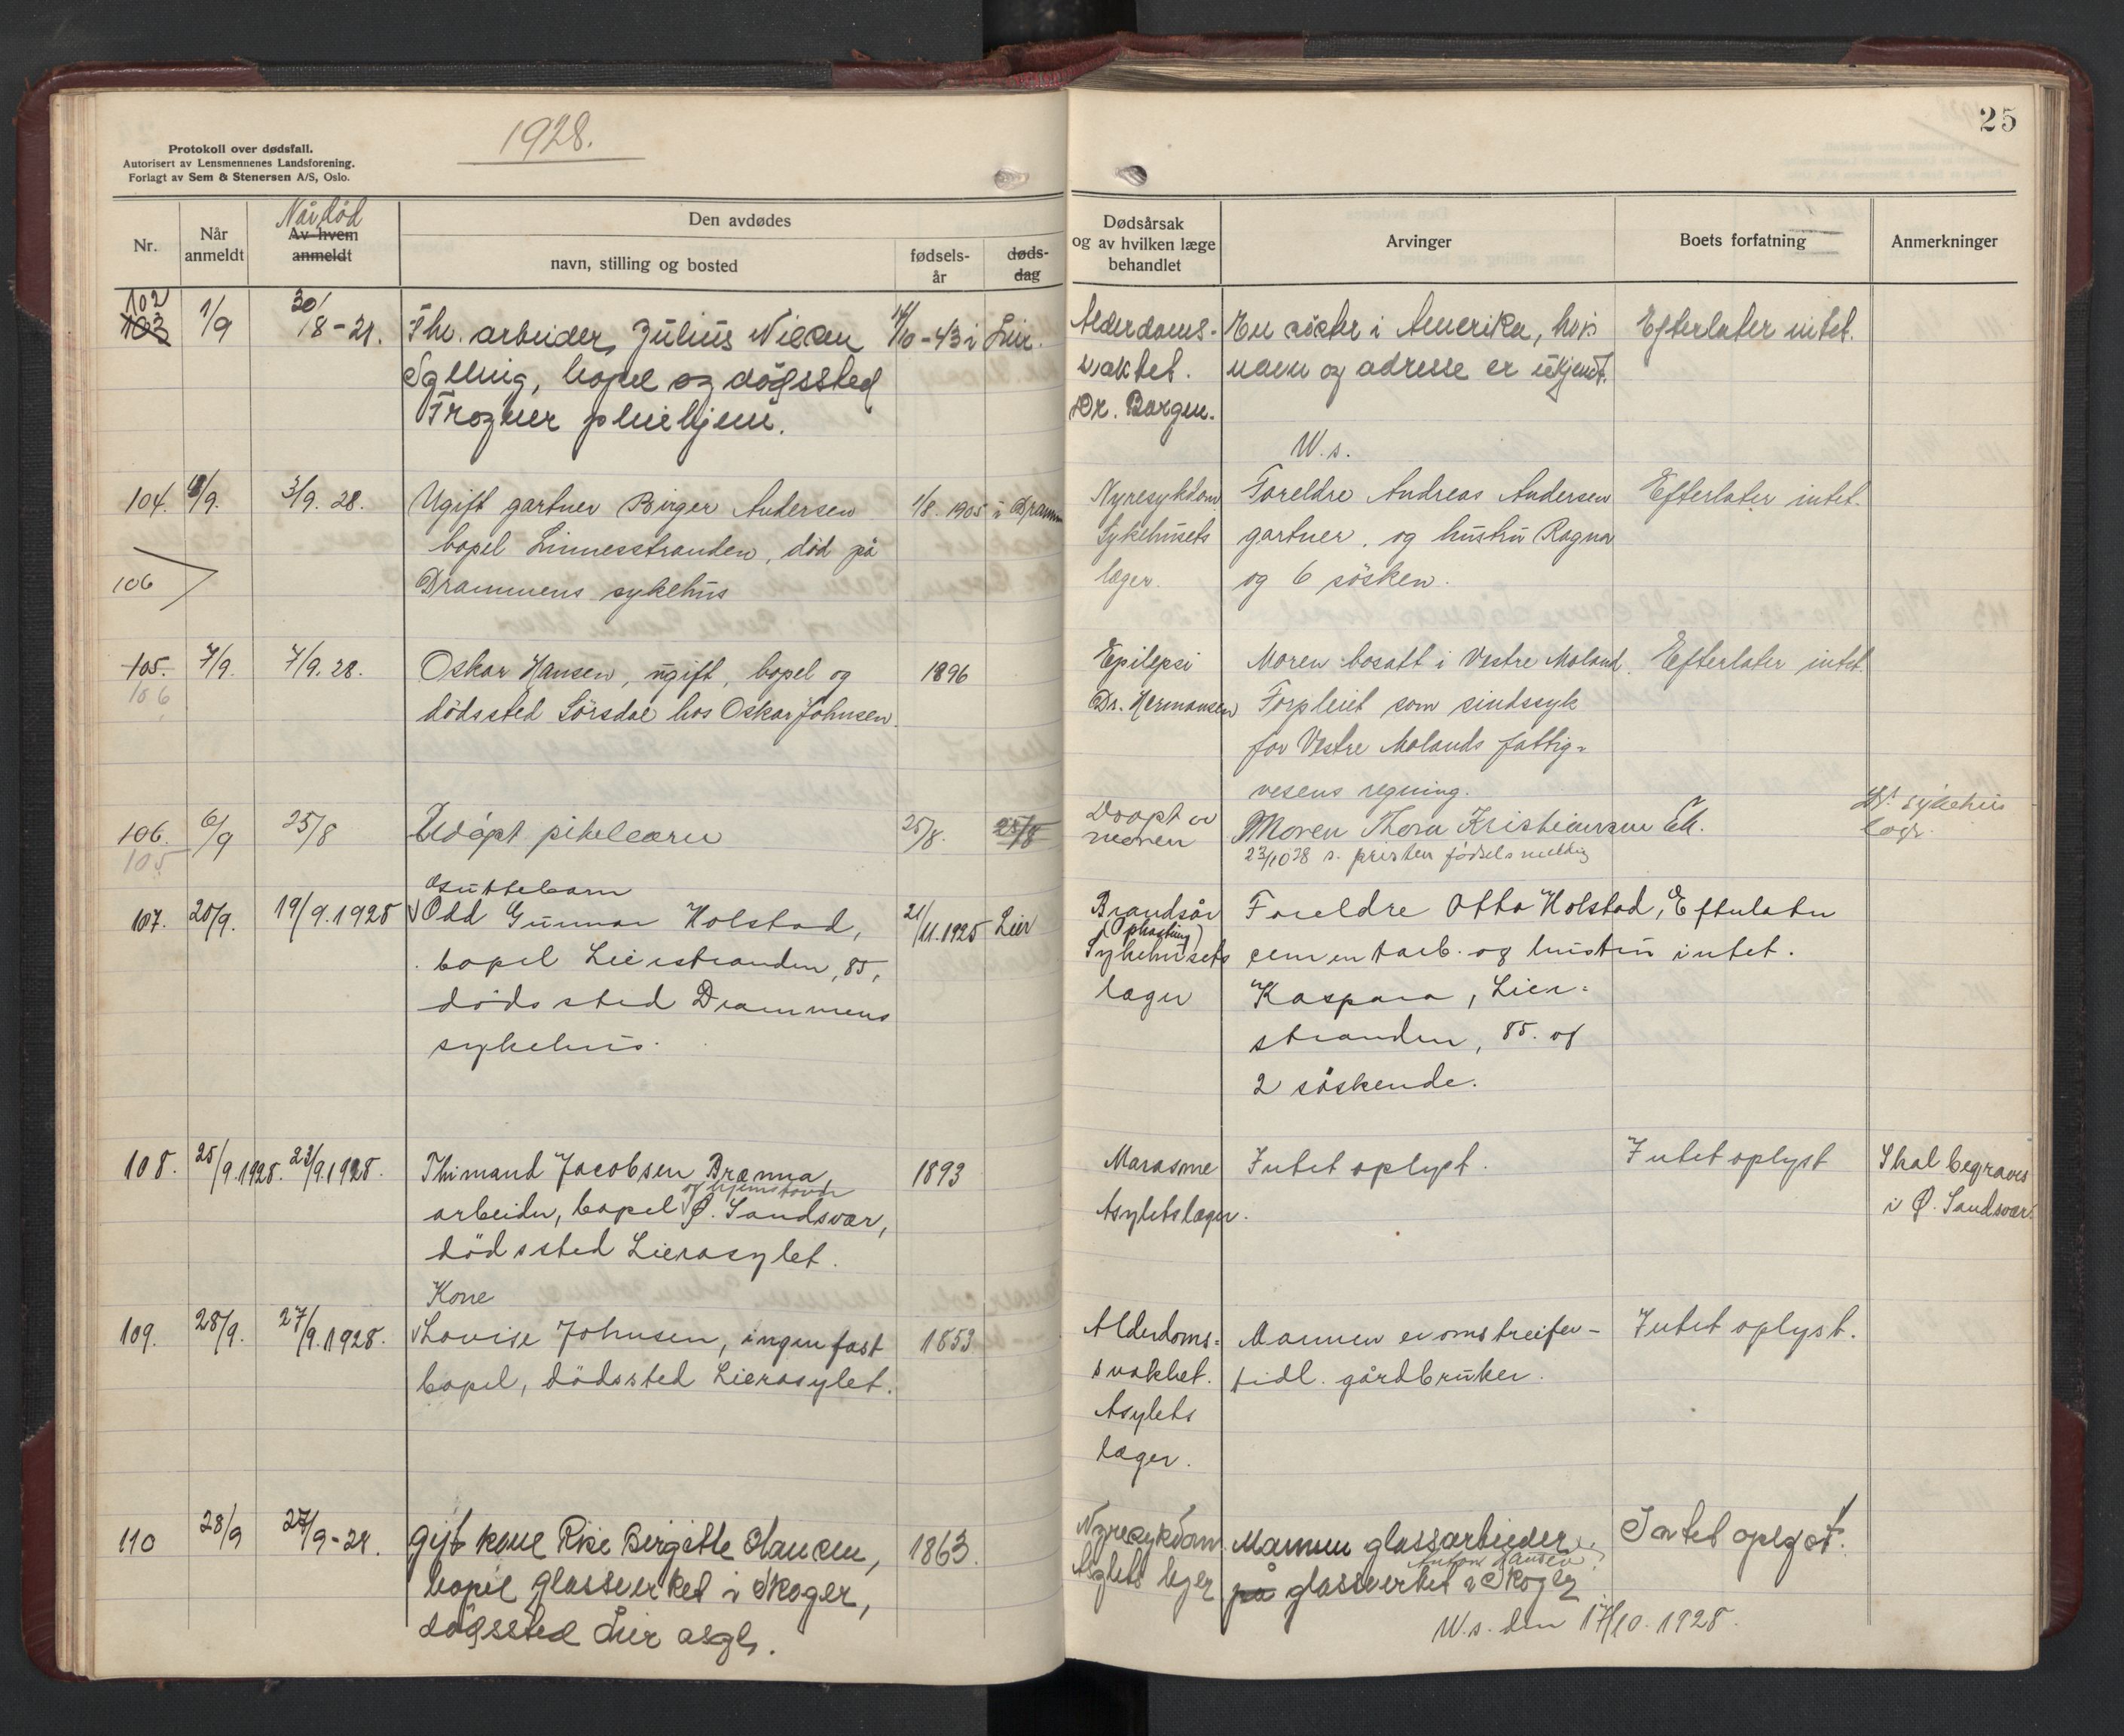 1928.
25
Protokoll over dødsfall.
Autorisert av Lensmennenes Landsforening.
Forlagt av Sem & Stenersen A/S, Oslo.
Nr.
Når anmeldt
Når død
Av hvem anmeldt
Den avdødes
navn, stilling og bosted
fødsels-år
døds-dag
Dødsårsak
og av hvilken læge
behandlet
Arvinger
Boets forfatning
Anmerkninger
102
103
1/9
30/8-28.
Fhv. arbeider Julius Nilsen
bopel og dödssted
Frogner pleiehjem.
/10-43 i Lier.
Alderdoms-
svakhet.
Dr. Borgen.
En søster i Amerika, hvis
navn og adresse er ukjendt.
W.s.
Efterlater intet.
104.
/9.
3/9. 28.
Ugift gartner Birger Andersen
bopel Linnesstranden, död på
Drammens sykehus
1/8. 1905 i Dramm
Nyresykdom
Sykehusets
læger.
Foreldre Andreas Andersen
gartner, og hustru Ragna
og 6 søsken.
Efterlater intet.
106
105.
106
7/9.
7/9. 28.
Oskar Hansen, ugift, bopel og
dödssted Sörsdal hos Oskar Johnsen.
1896
Epilepsi
Dr. Hermansen
Moren bosatt i Vestre Moland.
Forpleiet som sindssyk
for Vestre Molands fattig-
vesens regning.
Efterlater intet.
106.
105
6/9
25/8
Udöpt pikebarn
25/8.
25/8
moren
Moren Thora Kristiansen
23/10 28 s. presten fødselsmeldig
sykehus
107.
20/9.
19/9.1928
Guttebarn
Odd Gunnar Holstad,
bopel Lierstranden, 85,
dödssted Drammens
sykehus.
21/11.1925
Lier
Brandsår
Sykehusets
læger
Foreldre Otto Holstad,
cementarb. og hustru
Kaspara, Lier-
stranden, 85. og
2 søskende.
Efterlater
intet.
108.
25/9.1928.
23/9.1928.
Thimand Jacobsen Brænna,
og hjemstavn
arbeider, bopel Ø. Sandsvær,
dödssted Lierasylet.
1893
Marasme
Asylets læger.
Intet oplyst.
Intet oplyst
Skal begraves
i Ø. Sandsvær.
109.
28/9.
27/9.1928.
Kone
Lovise Johnsen, ingen fast
bopel, dödssted Lierasylet.
1853
Alderdoms-
svakhet.
Asylets
læger.
Mannen er omstreifer -
tidl. gårdbruker.
Intet oplyst.
110
28/9
27/9-28.
Gift kone Birgitte Hansen,
bopel glassverket i Skoger,
dödssted Lier asyl.
1863.
Nyresykdom.
Asylets leger
Mannen glassarbeider
Anton Hansen
på glassverket i Skoger
W.s. den 17/10.1928.
Intet oplyst.